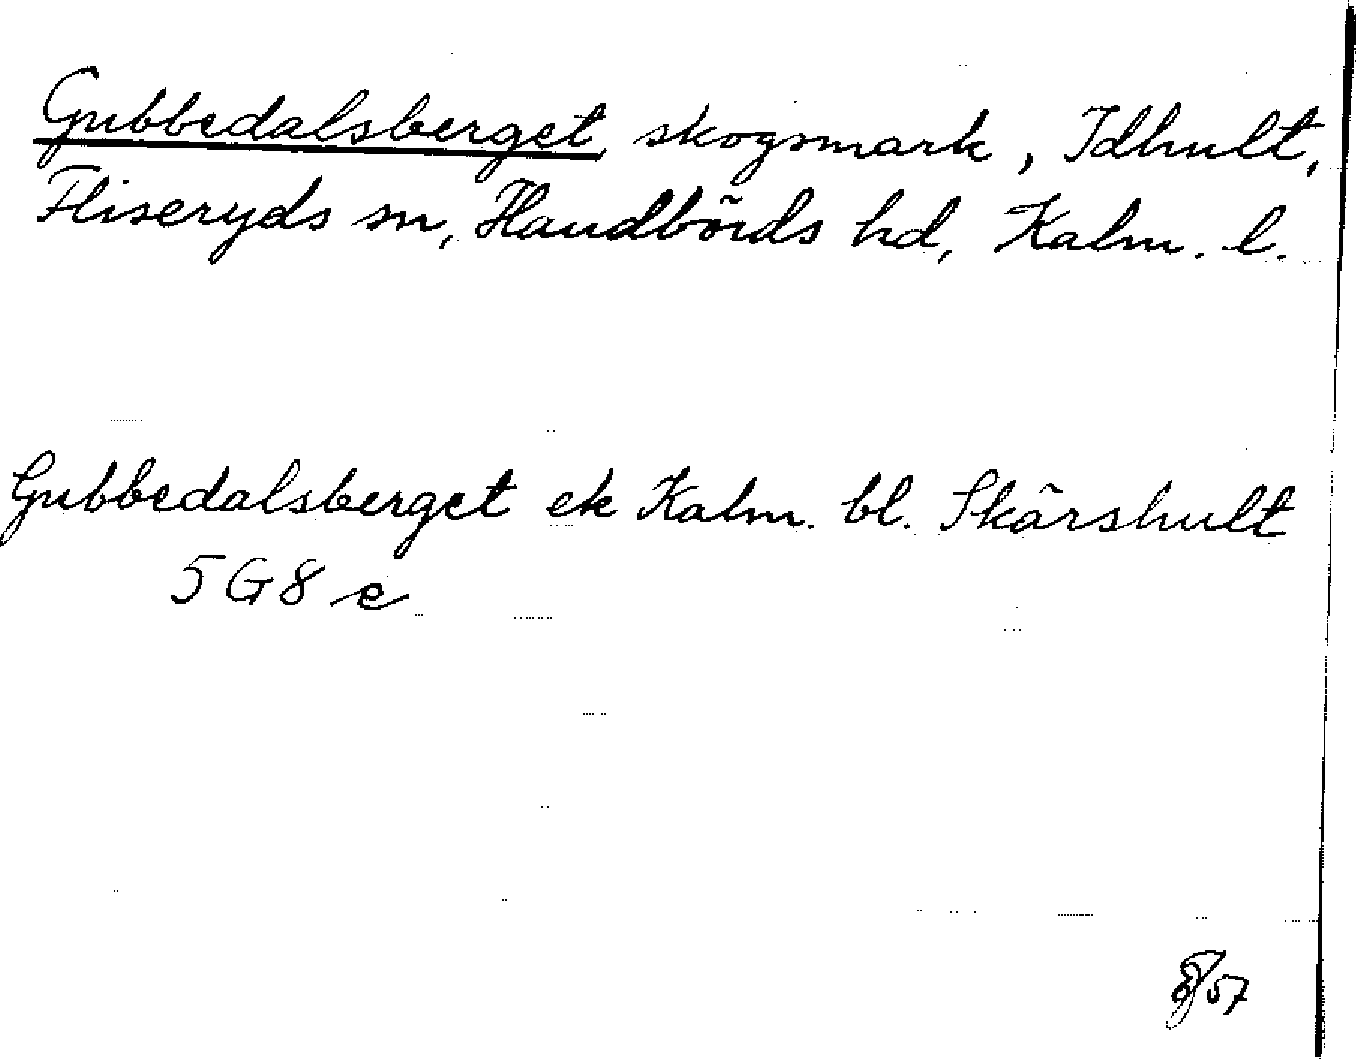 Gubbedalsberget, skogsmark, Idhult,
Fliseryds sn, Handbörds hd, Kalm. l.
Gubbedalsberget ek Kalm. bl. Skärshult
5G8e
57